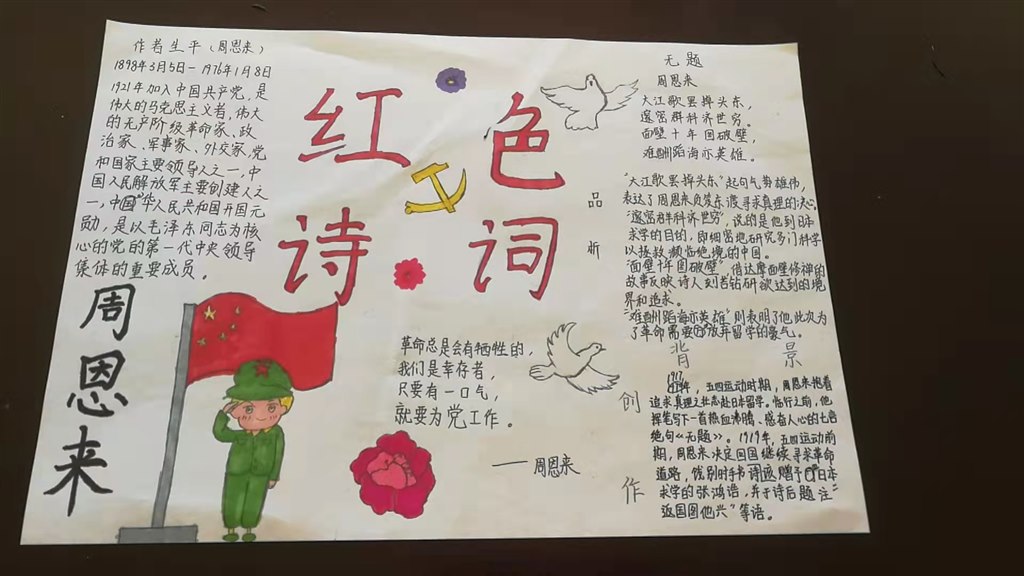 作者生平（周恩来）
1898年3月5日—1976年1月8日
1921年加入中国共产党，是
伟大的马克思主义者，伟大
的无产阶级革命家、政
治家、军事家、外交家，党
和国家主要领导人之一，中
国人民解放军主要创建人之
一，中国华人民共和国开国元
勋，是以毛泽东同志为核
心的党的第一代中央领导
集体的重要成员。
周恩来
红色
诗词
革命总是会有牺牲的，
我们是幸存者，
只要有一口气，
就要为党工作。
——周恩来
无题
周恩来
大江歌罢掉头东，
邃密群科济世穷。
面壁十年图破壁，
难酬蹈海亦英雄。
品析
"大江歌罢掉头东"起句气势雄伟，
表达了周恩来负笈东渡寻求真理的决心。
"邃密群科济世穷"，说的是他到日本
求学的目的，即细密地研究多门科学
以拯救濒临绝境的中国。
"面壁十年图破壁"借达摩面壁修禅的
故事反映诗人刻苦钻研欲达到的境
界和追求。
"难酬蹈海亦英雄"则表明了他此次为
了革命需要放弃留学的豪气。
创作背景
1917
年，五四运动时期，周恩来抱着
追求真理之壮志赴日本留学。临行之前，他
挥笔写下一首热血沸腾、感奋人心的七言
绝句《无题》。1919年，五四运动前
期，周恩来决定回国继续寻求革命
道路，饯别时手书诗迹赠予日本
求学的张鸿诰，并于诗后题注"
返国图他兴"等语。